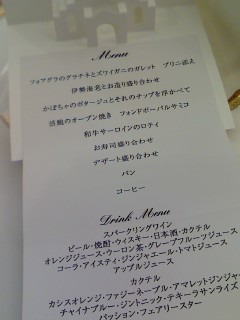 Menu
フォアグラのグラチネとズワイガニのガレット　ブリニ添え
伊勢海老とお造り盛り合わせ
かぼちゃのポタージュとそれのチップを浮かべて
のオーブン焼き　フォンドボーバルサミコ
和牛サーロインのロティ
お寿司盛り合わせ
デザート盛り合わせ
パン
コーヒー
Drink Menu
スパークリングワイン
ビール・焼酎・ウィスキー・日本酒・カクテル
オレンジジュース・ウーロン茶・グレープフルーツジュース
コーラ・アイスティ・ジンジャエール・トマトジュース
アップルジュース
カクテル
カシスオレンジ・ファジーネーブル・アマレットジンジャ
チャイナブルー・ジントニック・テキーラサンライズ
パッション・フェアリースター